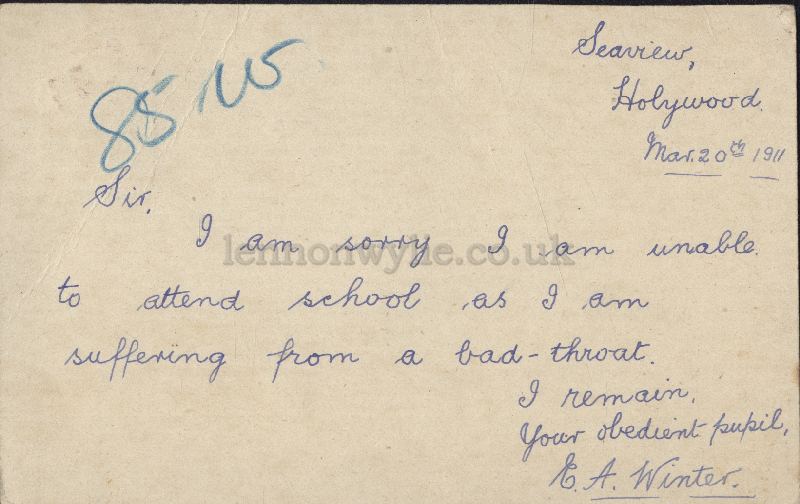 Seaview,
Holywood.
Mar. 20th 1911
Sir,
I am sorry I am unable
to attend school as I am
suffering from a bad-throat.
I remain,
Your obedient pupil,
E. A. Winter.
lennonwylie.co.uk